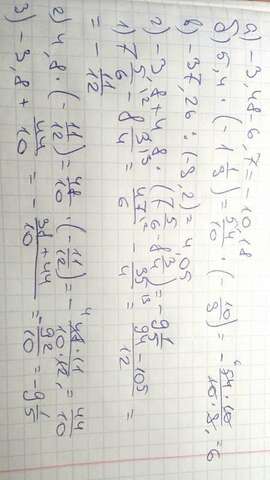 а) -3,48-6,7=-10,18
б) 5,4·(-1 1/9)=54/10·(-10/9)=-54·10/10·9=6
в) -37,26:(-9,2)=4,05
г) -3,8+4,8·(7 5/6-8 3/4)=-9 1/5
1) 7 5/6-8 3/4=47/6-35/4=94-105/12=
=-11/12
2) 4,8·(-11/12)=48/10·(-11/12)=-48·11/10·12=44/10
3) -3,8+44/10=-38+44/10=-92/10=-9 1/5